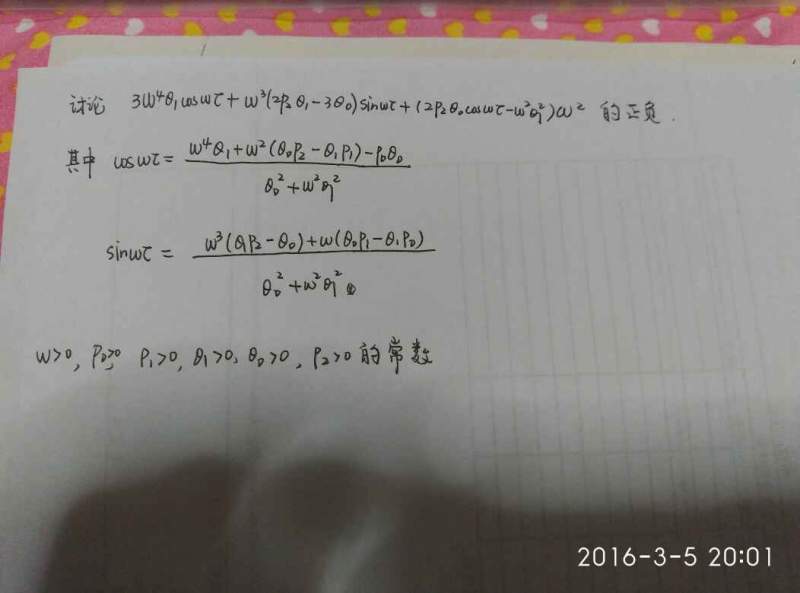 讨论 3ω⁴θ₁cosωτ + ω³(2p₂θ₁-3θ₀)sinωτ + (2p₂θ₀cosωτ-ω²θ₁²)ω² 的正负.
其中 cosωτ = (ω⁴θ₁+ω²(θ₀p₂-θ₁p₁)-p₀θ₀)/(θ₀²+ω²θ₁²)
sinωτ = (ω³(θ₁p₂-θ₀)+ω(θ₀p₁-θ₁p₀))/(θ₀²+ω²θ₁²)
ω>0, p₀>0, p₁>0, θ₁>0, θ₀>0, p₂>0 的常数
2016-3-5 20:01